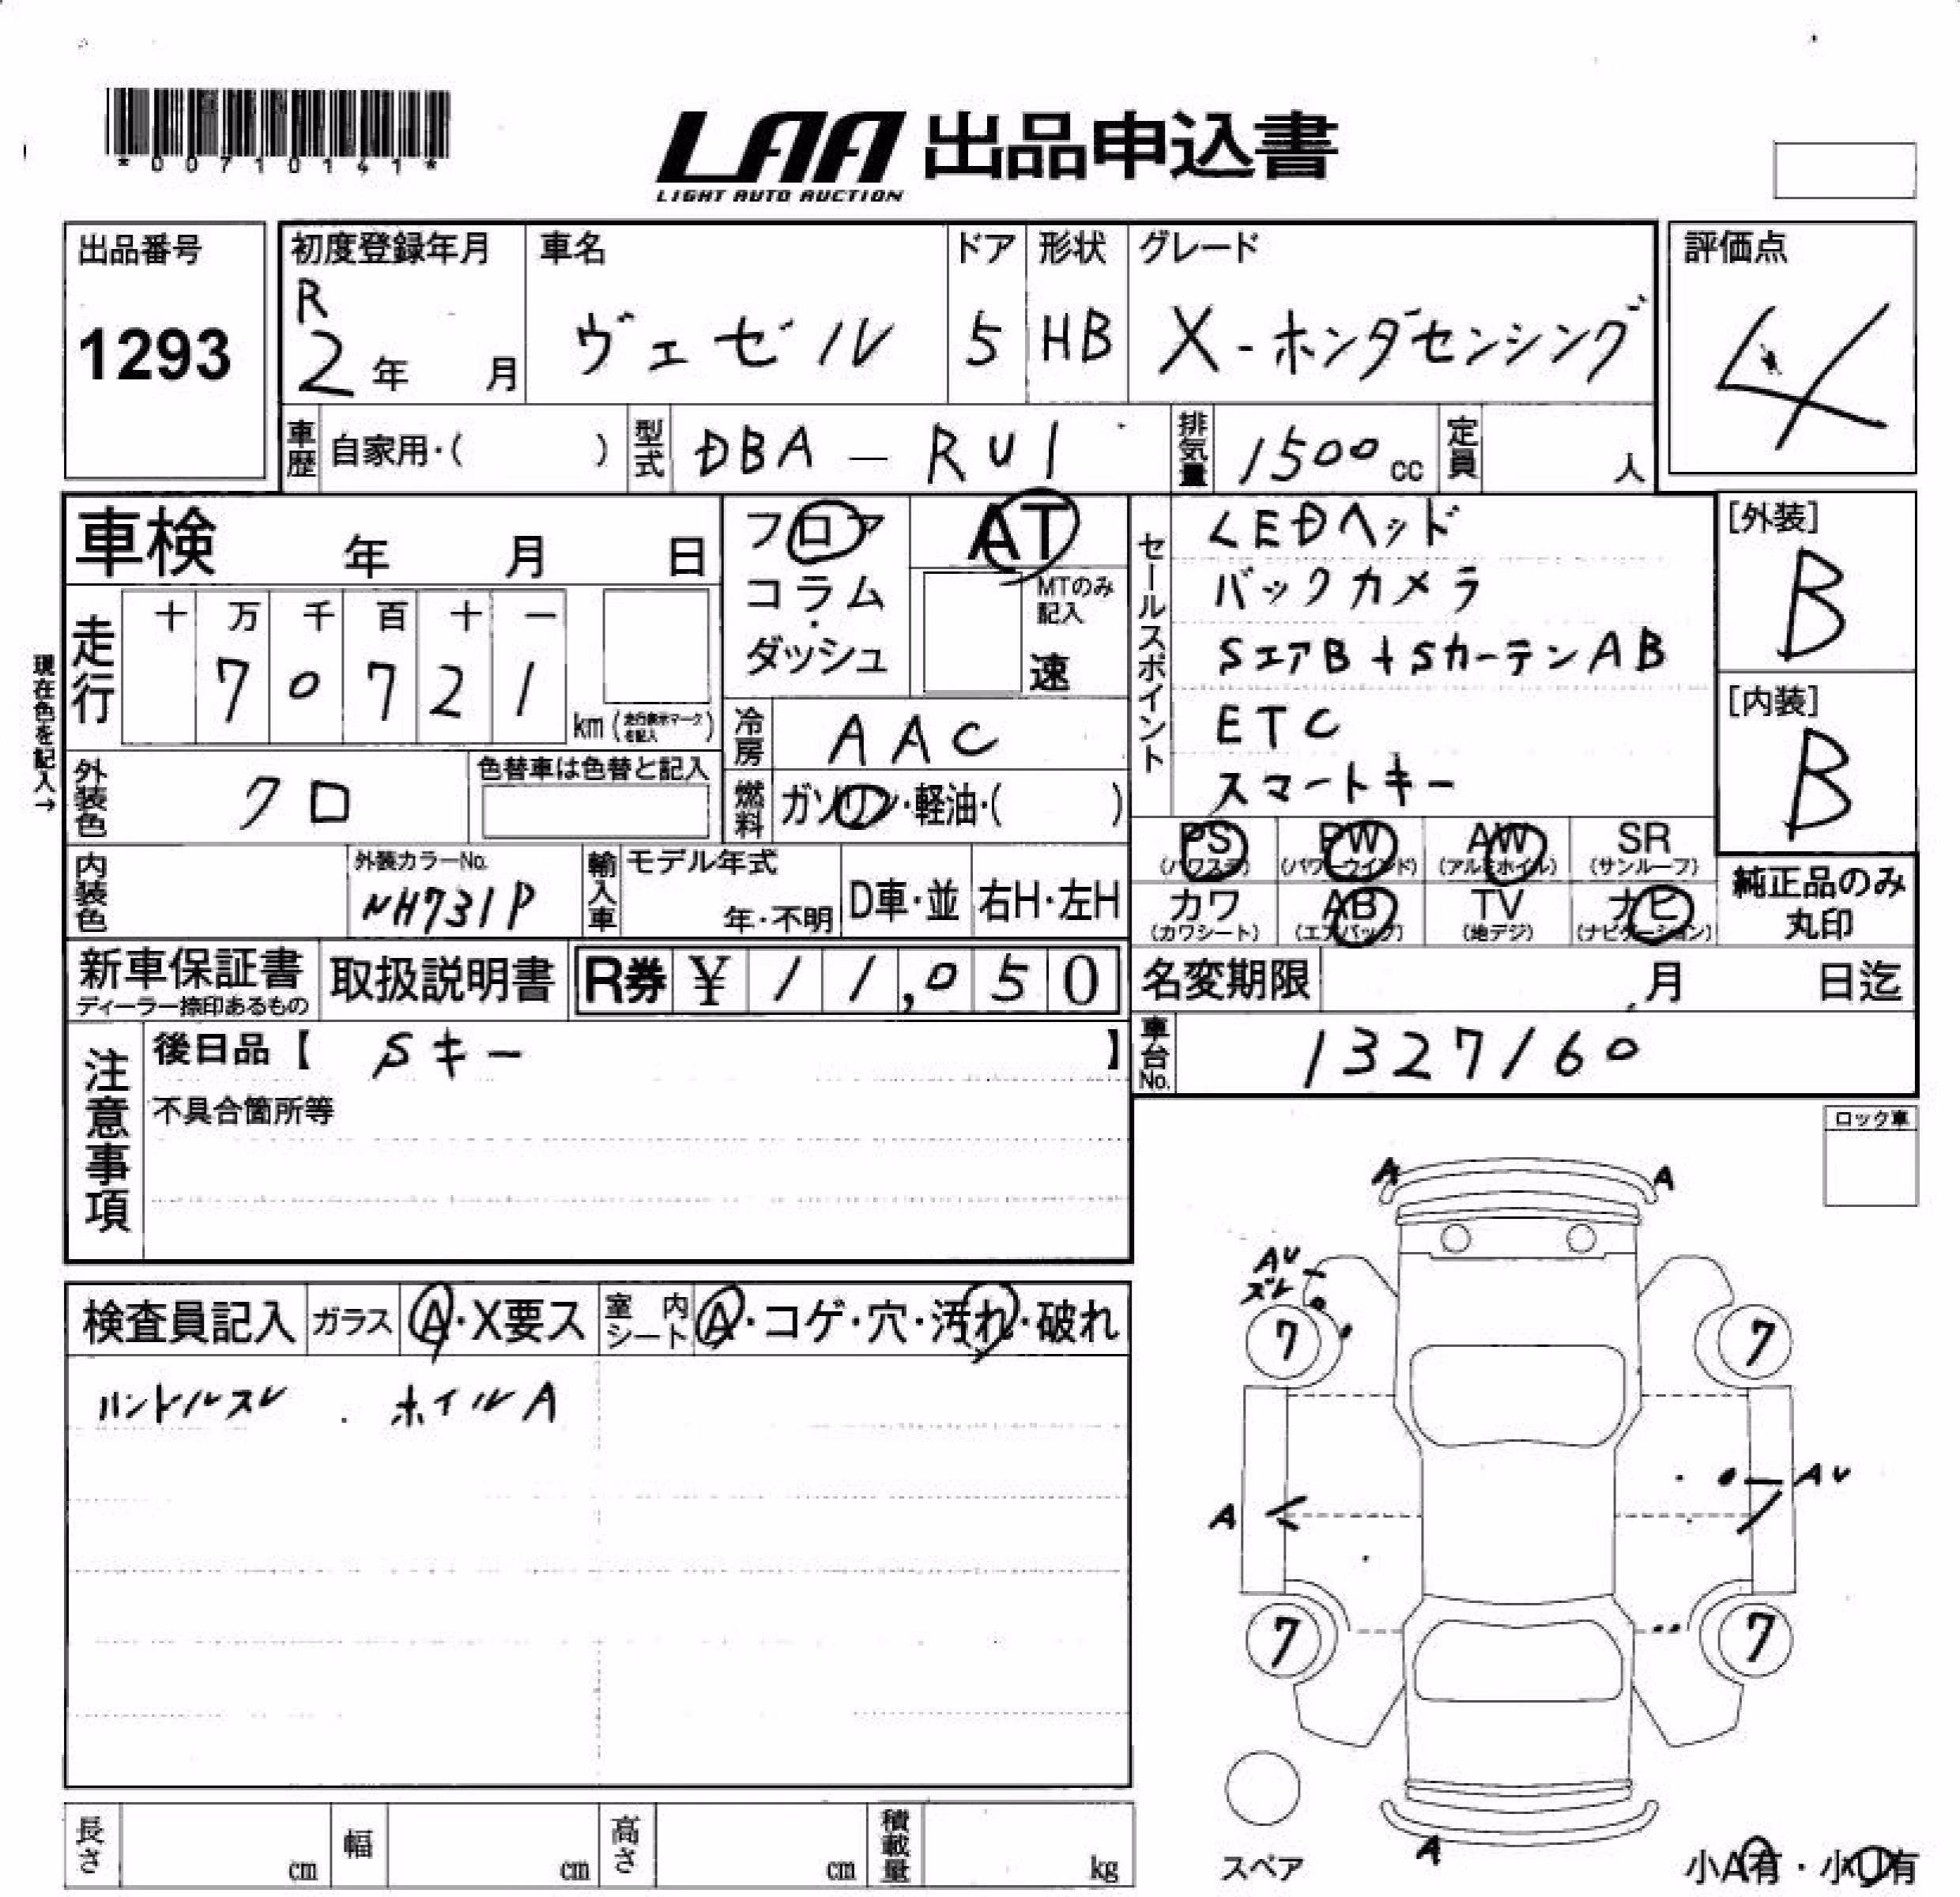 *00710141*
LAA 出品申込書
LIGHT AUTO AUCTION
出品番号
1293
初度登録年月
R
2年 月
車名
ヴェゼル
ドア
5
形状
HB
グレード
X-ホンダセンシング
評価点
4
車歴 自家用・( )
型式 DBA-RU1
排気量 1500cc
定員 人
車検 年 月 日
フロア
コラム
ダッシュ
AT
MTのみ
記入
速
セールスポイント
LEDヘッド
バックカメラ
SエアB+SカーテンAB
ETC
スマートキー
[外装]
B
[内装]
B
現在色を記入→
走行
十 万 千 百 十 一
7 0 7 2 1
km(走行表示マークを記入)
冷房 AAC
外装色 クロ
色替車は色替と記入
燃料 ガソリン・軽油・( )
PS AW SR
PW
(パワステ) (パワーウインド) (アルミホイル) (サンルーフ)
カワ AB TV ナビ
(カワシート) (エアバック) (地デジ) (ナビゲーション)
純正品のみ
丸印
内装色
外装カラーNo.
NH731P
輸入車 モデル年式
年・不明
D車・並
右H・左H
新車保証書
ディーラー捺印あるもの
取扱説明書
R券 ¥ 11,050
名変期限 月 日迄
車台No. 1327160
注意事項
後日品【 Sキー 】
不具合箇所等
ロック車
検査員記入
ガラス A・X要ス
室内シート A・コゲ・穴・汚れ・破れ
ハンドルスレ ホイルA
A A
AU
ズレ
7 7
AU
A
7 7
A
スペア
小A有・小U有
長さ cm
幅 cm
高さ cm
積載量 kg